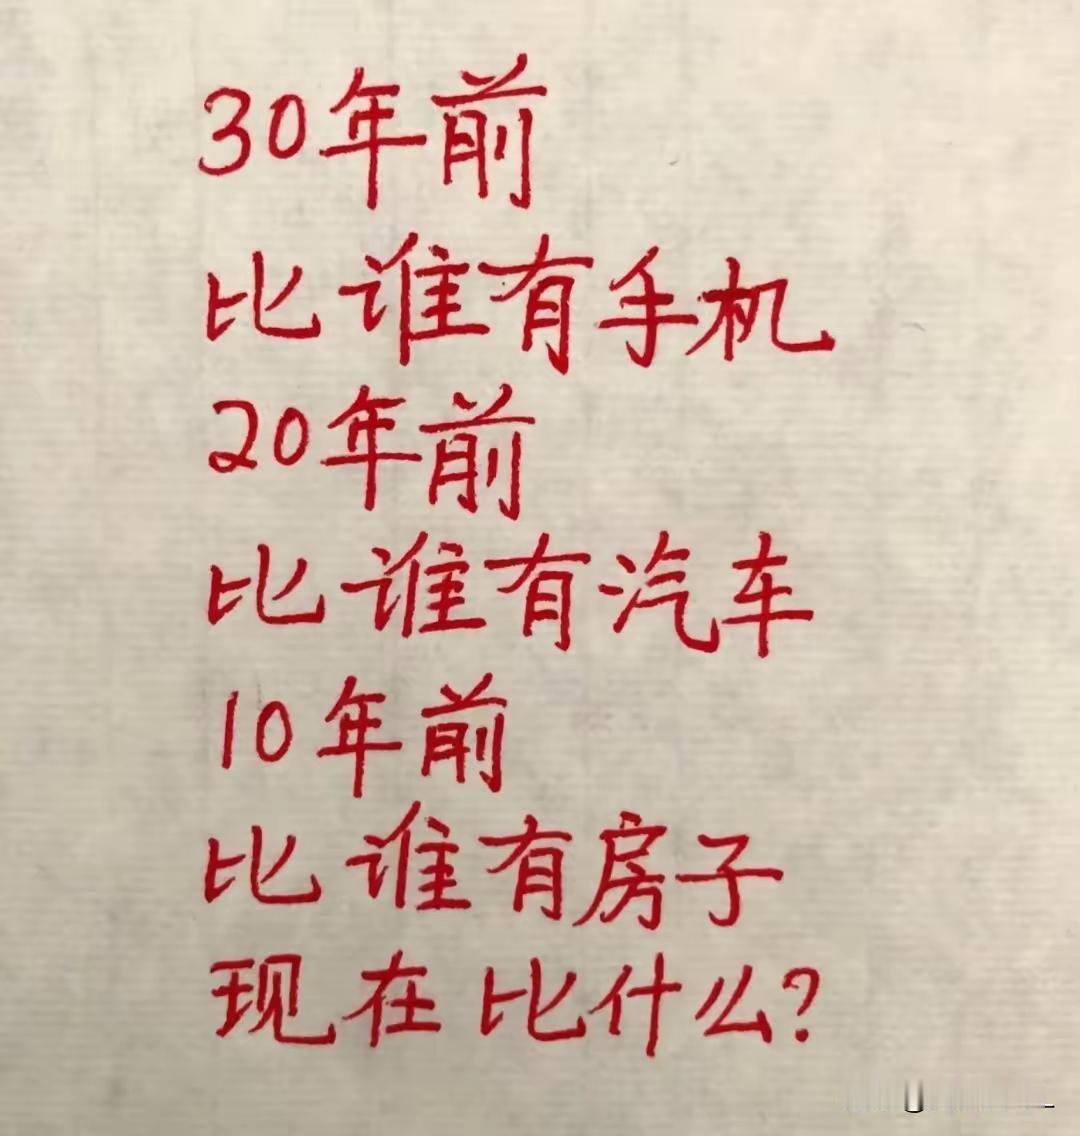 30年前
比谁有手机
20年前
比谁有汽车
10年前
比谁有房子
现在比什么?